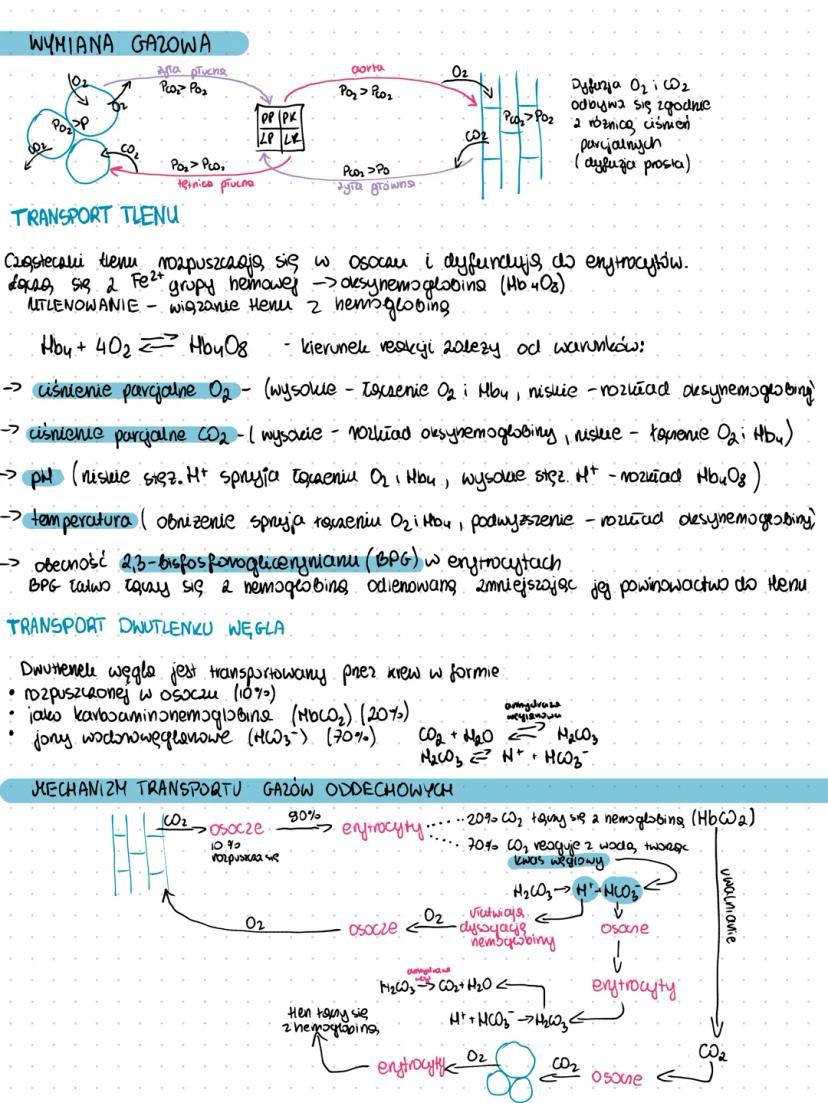 WYMIANA GAZOWA
żyła płucna
PCO2 > PO2
aorta
PO2 > PCO2
O2
O2
O2
PO2 > P
CO2
CO2
PP PK
LP LK
PCO2 > PO2
CO2
PO2 > PCO2
tętnica płucna
PCO2 > PO
żyła główna
Dyfuzja O2 i CO2
odbywa się zgodnie
z różnicą ciśnień
parcjalnych
(dyfuzja prosta)
TRANSPORT TLENU
Cząsteczki tlenu rozpuszczają się w osoczu i dyfundują do erytrocytów.
Łączą się z Fe2+ grupy hemowej -> oksyhemoglobina (Hb4O8)
UTLENOWANIE - wiązanie tlenu z hemoglobiną
Hb4 + 4O2 ⇄ Hb4O8 - kierunek reakcji zależy od warunków:
-> ciśnienie parcjalne O2 - (wysokie - łączenie O2 i Hb4, niskie - rozkład oksyhemoglobiny)
-> ciśnienie parcjalne CO2 - (wysokie - rozkład oksyhemoglobiny, niskie - łączenie O2 i Hb4)
-> pH (niskie stęż. H+ sprzyja łączeniu O2 i Hb4, wysokie stęż. H+ - rozkład Hb4O8)
-> temperatura (obniżenie sprzyja łączeniu O2 i Hb4, podwyższenie - rozkład oksyhemoglobiny)
-> obecność 2,3-bisfosfonoglicerynianu (BPG) w erytrocytach
BPG łatwo łączy się z hemoglobiną odtlenowaną zmniejszając jej powinowactwo do tlenu
TRANSPORT DWUTLENKU WĘGLA
Dwutlenek węgla jest transportowany przez krew w formie
• rozpuszczonej w osoczu (10%)
• jako karboaminohemoglobina (HbCO2) (20%)
• jony wodorowęglanowe (HCO3-) (70%)
anhydraza
węglanowa
CO2 + H2O ⇄ H2CO3
H2CO3 ⇄ H+ + HCO3-
MECHANIZM TRANSPORTU GAZÓW ODDECHOWYCH
CO2
osocze
10%
rozpuszcza się
90%
erytrocyty
20% CO2 łączy się z hemoglobiną (HbCO2)
70% CO2 reaguje z wodą, tworząc
kwas węglowy
H2CO3 -> H+ + HCO3-
uwalnianie
O2
osocze
O2
ułatwiają
dysocjację
hemoglobiny
osocze
erytrocyty
anhydraza
węgl
H2CO3 -> CO2 + H2O
H+ + HCO3- -> H2CO3
tlen łączy się
z hemoglobiną
erytrocyty
O2
CO2
osocze
CO2